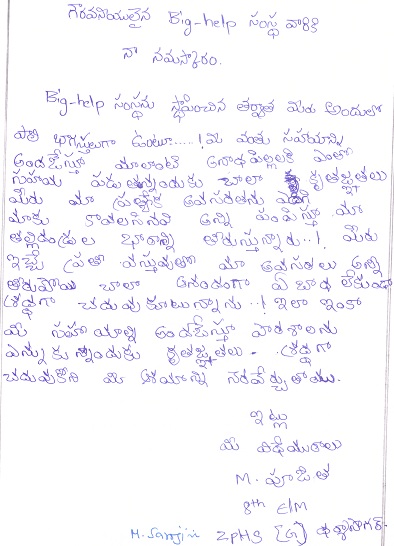 గౌరవనీయులైన Big-help సంస్థ వారికి
నా నమస్కారం.
Big-help సంస్థను స్థాపించిన తర్వాత మీరు అందులో
భాగస్తులుగా ఉంటూ.....! మీ వంతు సహాయాన్ని
అందజేస్తూ మాలాంటి అనాథపిల్లలకి ఎంతో
సహాయ పడుతున్నందుకు చాలా కృతజ్ఞతలు
మీరు మా ప్రత్యేక అవసరతను
మాకు కావలసినవి అన్ని పంపిస్తూ మా
తల్లిదండ్రుల భారాన్ని తీరుస్తున్నారు..!, మీరు
ఇచ్చే ప్రతి వస్తువుతో మా అవసరతలు అన్ని
తీరిపోయి చాలా ఆనందంగా ఏ బాధ లేకుండా
శ్రద్ధగా చదువుకుంటున్నాను..! ఇలా ఇంకా
మీ సహాయాన్ని అందజేస్తూ పాఠశాలను
ఎన్నుకున్నందుకు కృతజ్ఞతలు. శ్రద్ధగా
చదువుకొని మీ ఆశయాన్ని నెరవేర్చుతాము.
ఇట్లు
మీ విధేయురాలు
M. పూజిత
8th E/M
M. Sarojini ZPHS (G)